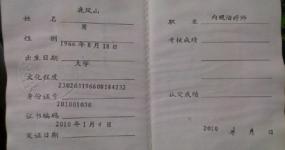 姓名 龙凤山
性别 男
出生日期 1966年8月18日
文化程度 大学
身份证号 230203196608184232
证书编码 201001030
发证日期 2010年1月4日
职业 内观治疗师
考核成绩
认定成绩
2010 年 月 日